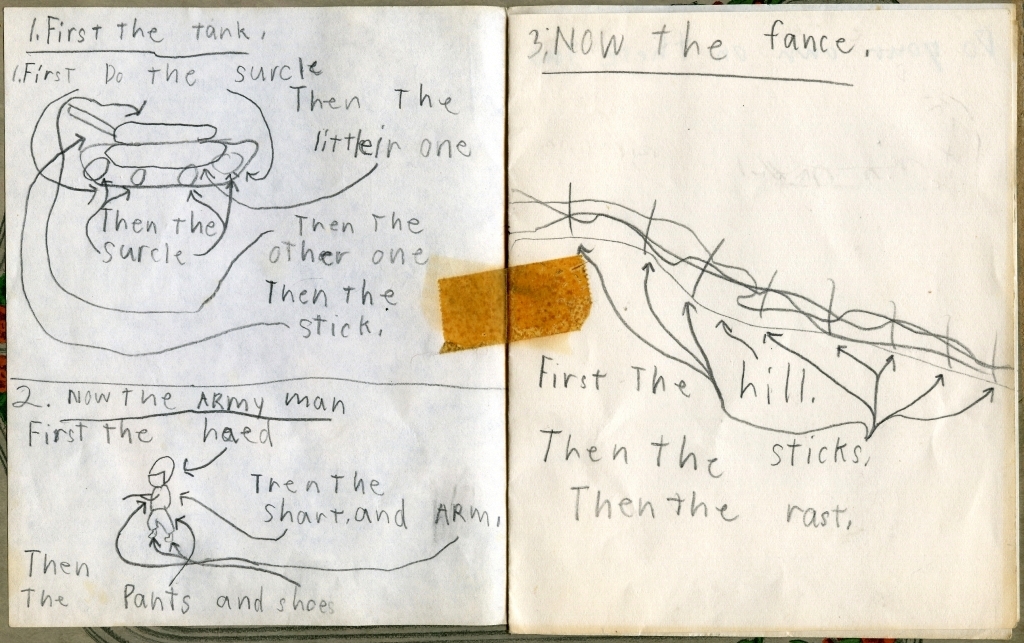 1. First the tank.
1. First Do the surcle
Then the
littleir one
Then the
surcle
Then the
other one
Then the
stick.
2. Now the ARMy man
First the haed
Then the
shart, and ARM.
Then
the Pants and shoes
3. NOW the fance.
First The hill.
Then the sticks.
Then the rast.